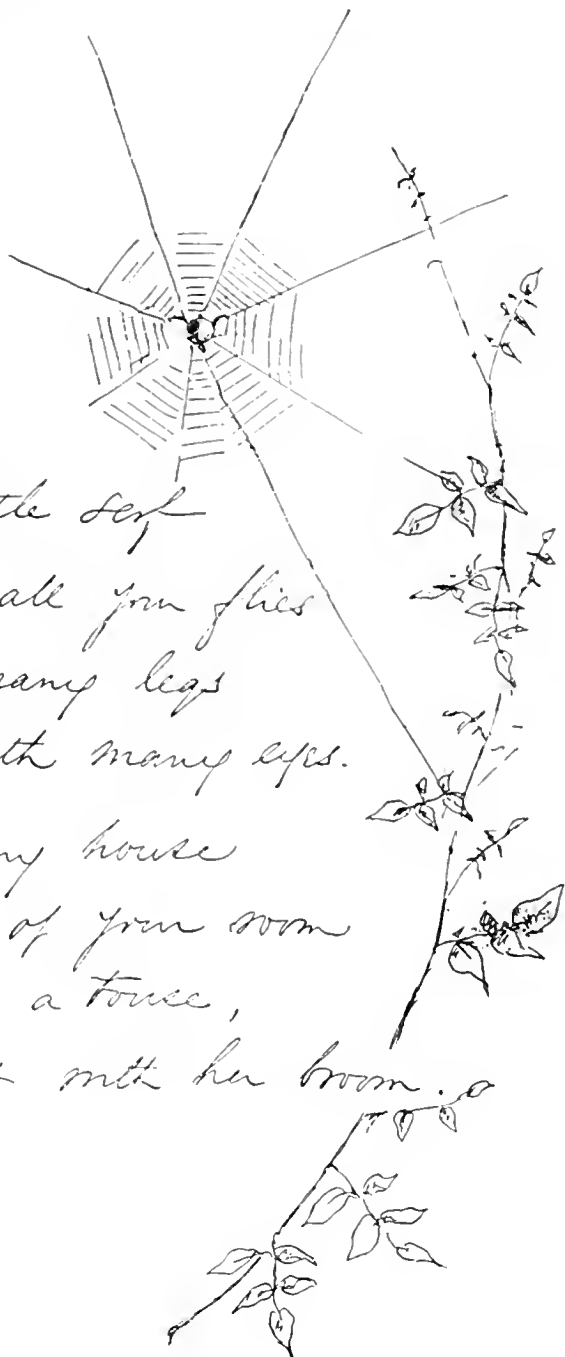 tle serf
all your flies
many legs
th many eyes.
my house
of your room
a touse,
with her broom.